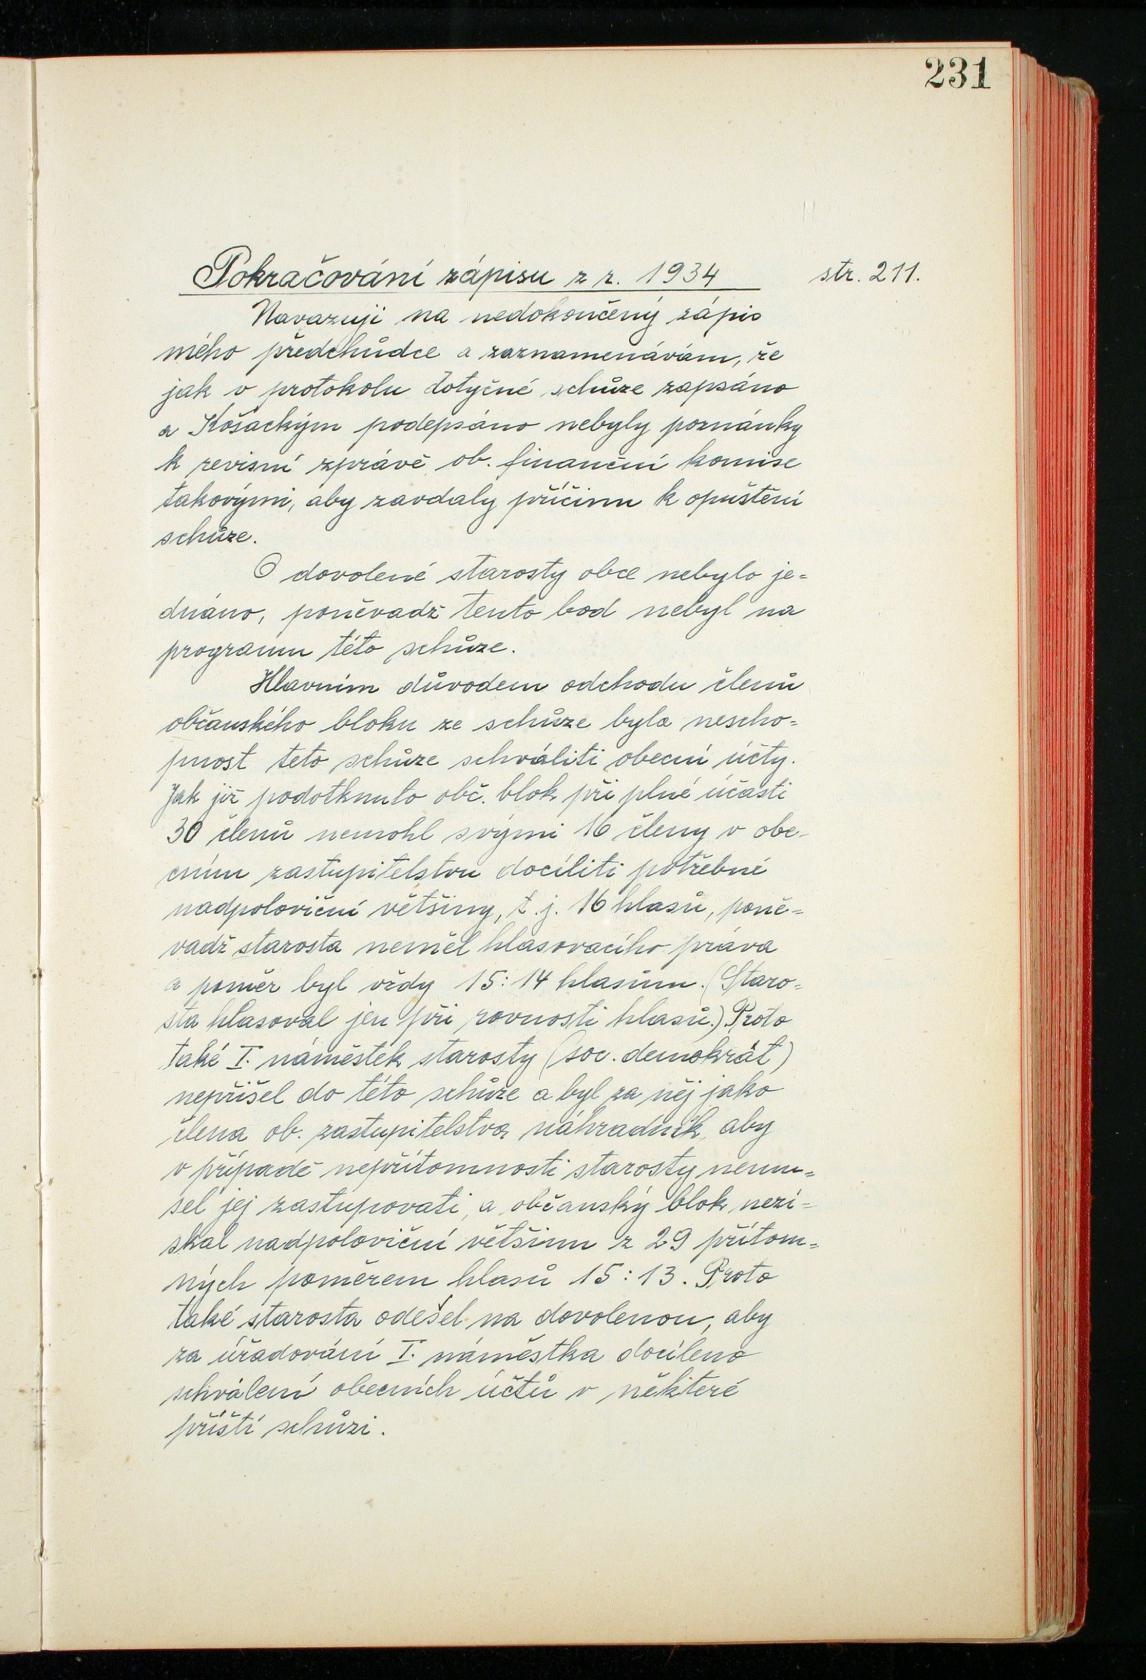 231
Pokračování zápisu z r. 1934 str. 211.
Navazuji na nedokončený zápis
mého předchůdce a zaznamenávám, že
jak v protokolu dotyčné schůze zapsáno
a Košackým podepsáno nebyly poznámky
k revisní zprávě ob. finanční komise
takovými, aby zavdaly příčinu k opuštění
schůze.
O dovolené starosty obce nebylo je=
dnáno, poněvadž tento bod nebyl na
programu této schůze.
Hlavním důvodem odchodu členů
občanského bloku ze schůze byla nescho=
pnost této schůze schváliti obecní účty.
Jak již podotknuto obč. blok při plné účasti
30 členů nemohl svými 16 členy v obe-
cním zastupitelstvu docíliti potřebné
nadpoloviční většiny, t. j. 16 hlasů, poně=
vadž starosta neměl hlasovacího práva
a poměr byl vždy 15:14 hlasům. (Staro=
sta hlasoval jen při rovnosti hlasů.) Proto
také I. náměstek starosty (soc. demokrát)
nepřišel do této schůze a byl za něj jako
člena ob. zastupitelstva náhradník, aby
v případě nepřítomnosti starosty nemu=
sel jej zastupovati, a občanský blok nezí=
skal nadpoloviční většinu z 29 přítom=
ných poměrem hlasů 15:13. Proto
také starosta odešel na dovolenou, aby
za úřadování I. náměstka docíleno
schválení obecních účtů v některé
příští schůzi.